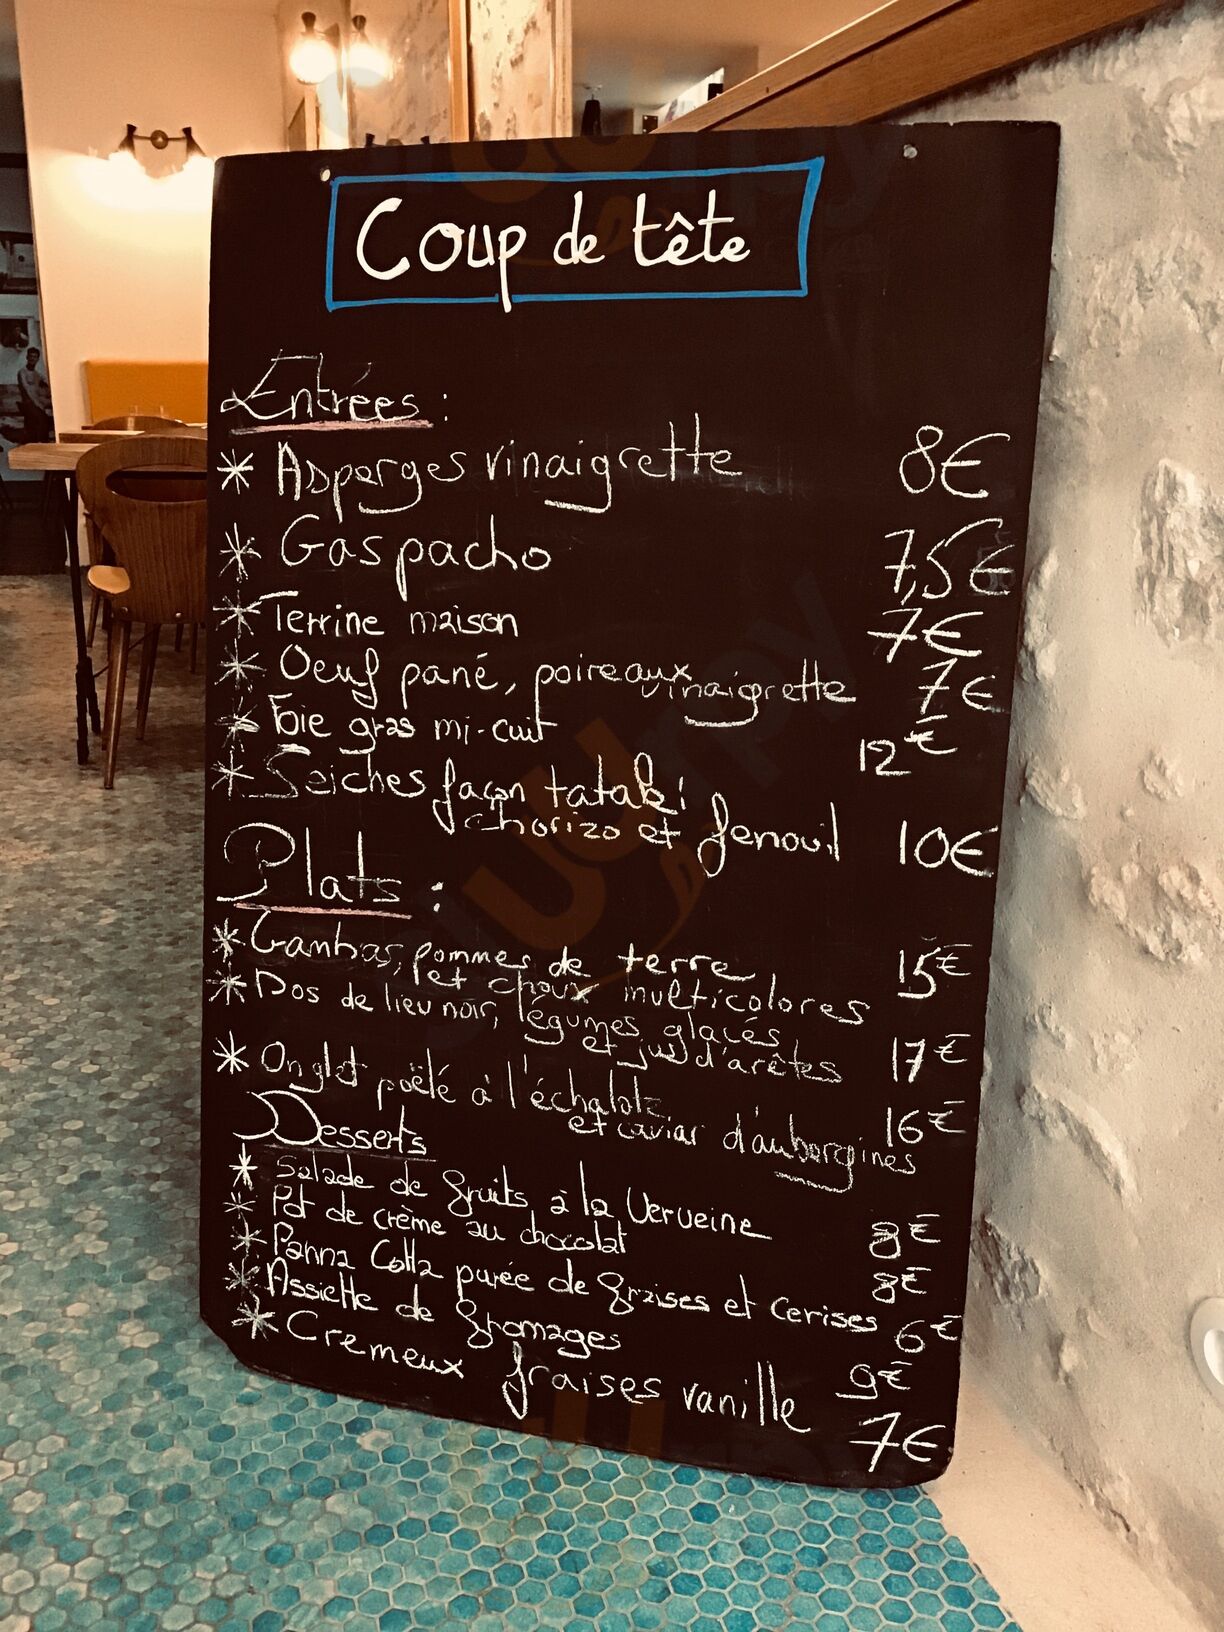 Coup de tête
Entrées :
* Asperges vinaigrette 8€
* Gaspacho 7,5€
* Terrine maison 7€
* Oeuf pané, poireaux
vinaigrette 7€
* Foie gras mi-cuit 12€
* Seiches façon tataki
chorizo et fenouil 10€
Plats :
* Gambas, pommes de terre
et choux multicolores 15€
* Dos de lieu noir, légumes glacés
et jus d'arêtes 17€
* Onglet poêlé à l'échalote
et caviar d'aubergines 16€
Desserts
* Salade de fruits à la Verveine 8€
* Pot de crème au chocolat 8€
* Panna Cotta purée de fraises et cerises 6€
* Assiette de fromages 9€
* Cremeux fraises vanille 7€